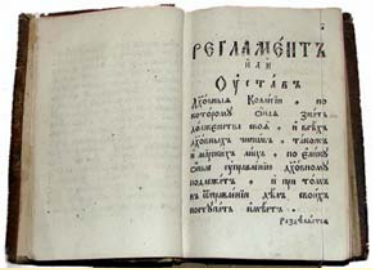 РЕГЛАМЕ́НТЪ
и҆лѝ
Оу҆ста́въ
Дꙋхо́вныѧ Колле́гїи, по
которомꙋ сїѧ̀ зна́ть
до́лженства своѧ̀, и҆ всѣ́хъ
дꙋхо́вныхъ чино́въ, тако́жъ
и҆ мїрски́хъ ли́цъ, по є҆ли́кꙋ
ᲂу҆правле́нїю дꙋхо́вномꙋ
подлежа́тъ, и҆ при то́мъ
въ ᲂу҆правле́нїи дѣ́лъ свои́хъ
постꙋпа́ть и҆мѣ́етъ.